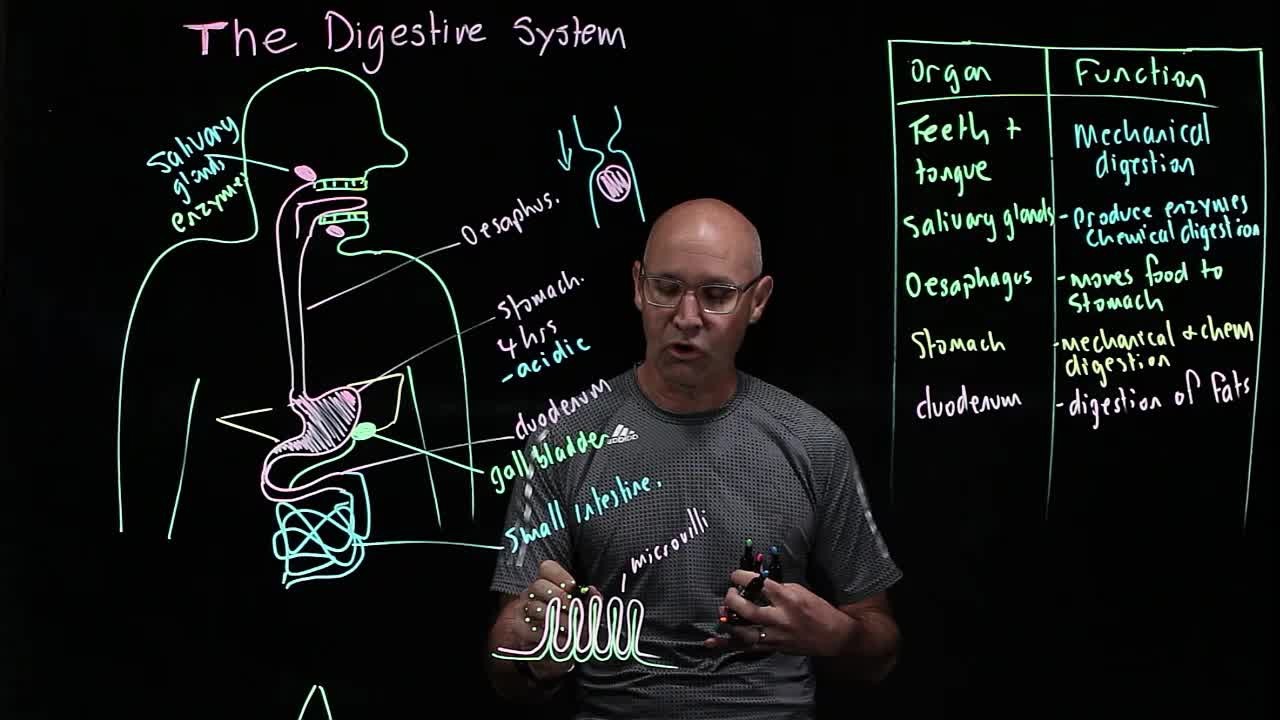 The Digestive System
Salivary
glands
enzymes
Oesaphus.
Stomach.
4 hrs
- acidic
duodenum
gall bladder
Small intestine.
microvilli
adidas
Organ Function
Teeth + Mechanical
tongue digestion
Salivary glands - produce enzymes
Chemical digestion
Oesaphagus - moves food to
Stomach
Stomach - mechanical + chem
digestion
duodenum - digestion of fats